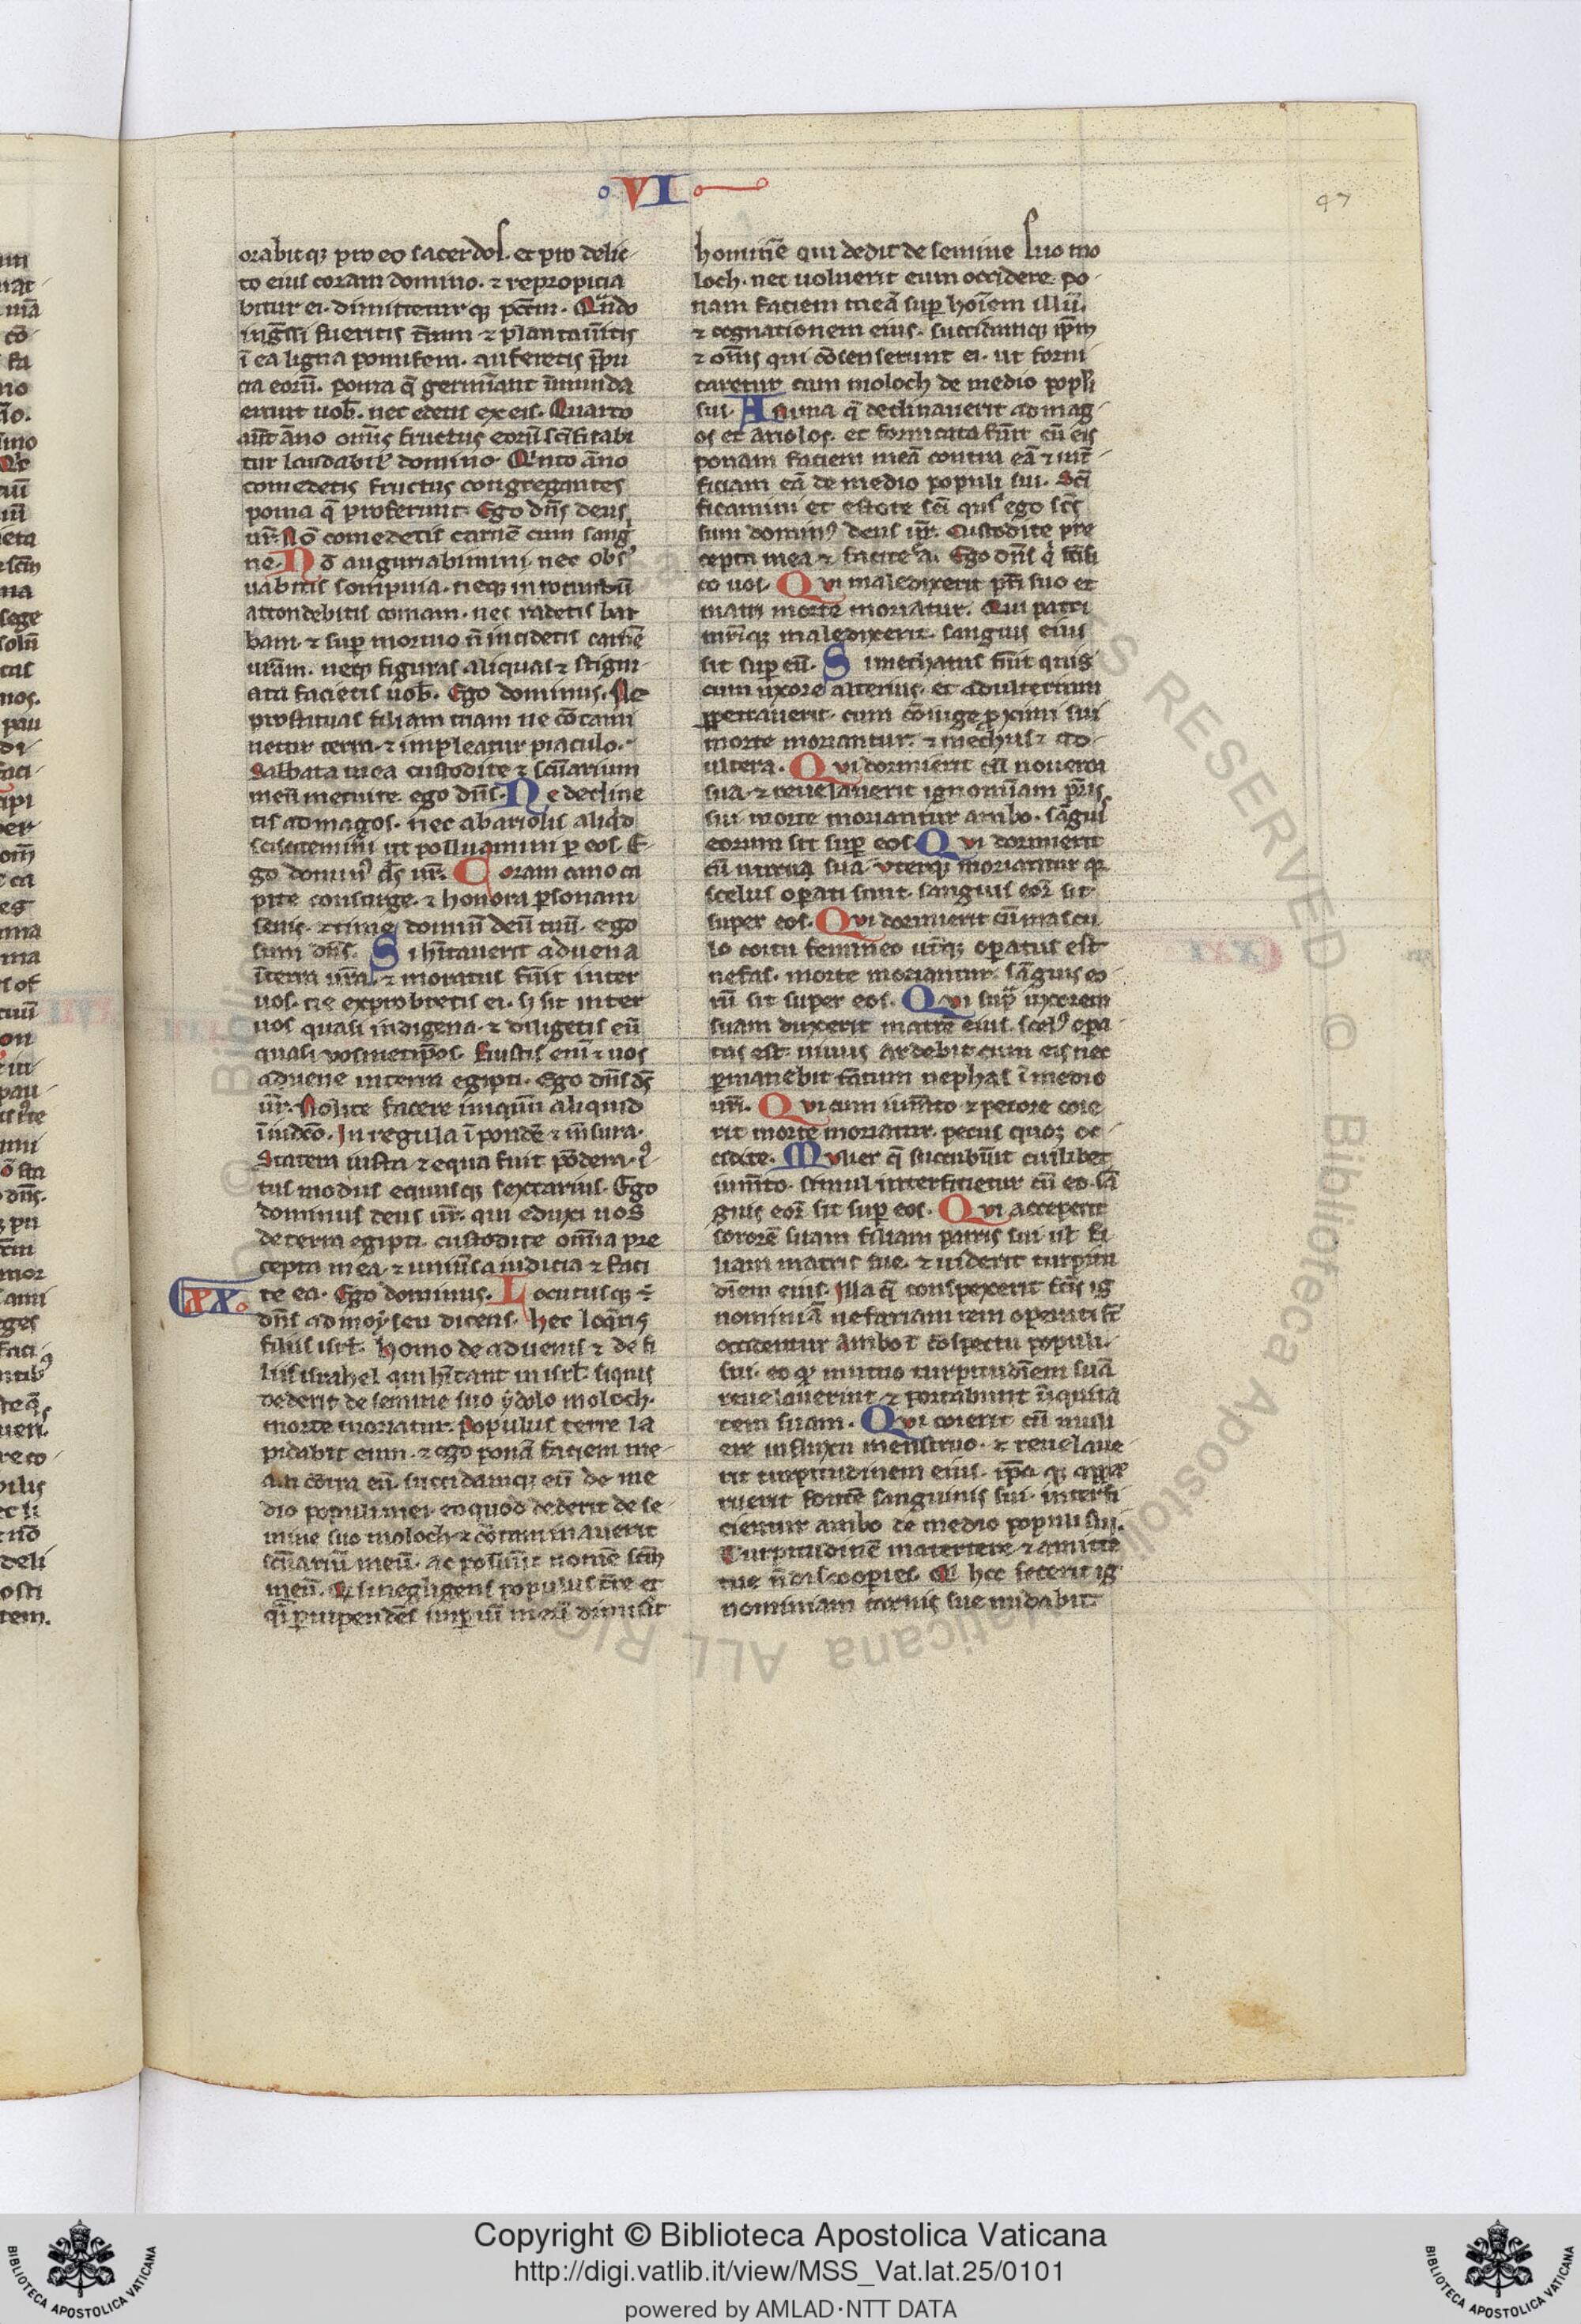 VI
97
orabitq; pro eo sacerdos. et pro delic-
to eius coram domino. ⁊ repropicia
bitur ei. dimitteturq; pctm̄. Qn̄do
ingr̄ssi fueritis tr̄am ⁊ plantau̅itis
ī ea ligna pomifera. auferetis p̄pu
cia eorū. poma q̄ germīant īmunda
erunt uob̄. nec edetis ex eis. Quarto
aut̄ āno om̄is fructus eorū sc̄ificabi
tur laudabil' domino. Qinto āno
comedetis fructus congregantes
poma q̄ proferunt. Ego dn̄s deus
ur̄. Nō comedetis carnē cum sang
ne. Nō augurabimini. nec obs'
uabitis sompnia. neq; in rotundū
attondebitis comam. nec radetis bar
bam. ⁊ sup̱ mortuo n̄ incidetis carnē
ur̄am. neq; figuras aliquas ⁊ stigm-
ata facietis uob̄. Ego dominus. Ne
prostituas filiam tuam ne cōtami
netur terra. ⁊ impleatur piaculo.
Sabbata mea custodite ⁊ sc̄uarium
meū metuite. ego dn̄s. Ne decline
tis ad magos. nec ab ariolis aliq̇d
sciscitemini ut polluamini ꝑ eos. E
go domin' ds̄ ur̄. Coram cano ca
pite consurge. ⁊ honora ꝑsonam
senis. ⁊ time domin̄ deū tuū. ego
sum dn̄s. Si hītauerit aduena
ī terra ur̄a. ⁊ moratus fūit inter
uos. ne exprobretis ei. s; sit inter
uos quasi indigena. ⁊ diligetis eū
quasi uosmetip̄os. Fuistis enī ⁊ uos
aduene in terra egipti. Ego dn̄s ds̄
ur̄. Nolite facere iniquū aliquid
ī iudcō. In regula ī pondē ⁊ m̄sura.
Statera iusta ⁊ equa sint pōdera. i'
tus modius equusq; sextarius. Ego
dominus deus ur̄. qui eduxi uos
de terra egipti. custodite om̄ia pre
cepta mea. ⁊ uniūsa iudicia ⁊ faci
XX. te ea. Ego dominus. Locutusq; ÷
dn̄s ad moysen dicens. hec loq̄ris
filiis isrl̄. homo de aduenis ⁊ de fi
liis israhel qui hītant in isrl̄. siquis
dederit de semine suo ydolo moloch.
morte moriatur. Populus terre la
pidabit eum. ⁊ ego ponā faciem me-
am cōtra eū. succidamq; eū de me
dio populi mei eo quod dederit de se-
mine suo moloch. ⁊ cōtaminauerit
sc̄uariū meū. ac polūit nomē scm̄
meū. Q̇ si negligens populus tr̄e et
q̄i ꝑuipendēs imꝑiū meū dimiserit
hominē qui dedit de semine suo mo
loch. nec uoluerit eum occidere. po-
nam faciem meā sup̱ hoīem illū.
⁊ cognationem eius. succidamq; ip̄m
⁊ om̄is qui cōsenserunt ei. ut forni
caretur cum moloch de medio popl̄i
sui. Anima q̄ declinauerit ad mag-
os et ariolos. et fornicata fūit cū eis
ponam faciem meā contra eā ⁊ int̄-
ficiam eā de medio populi sui. Sci
ficamini et estote scī quia ego scs̄
sum domin' deus ur̄. Custodite pre
cepta mea ⁊ facite ea. Ego dn̄s q̇ sc̄ifi
co uos. Qvi maledixerit pr̄i suo et
matri morte moriatur. Qui patri
mr̄iq; maledixerit. sanguis eius
sit sup̱ eū. Si mechatus fūit quis
cum uxore alterius. et adulterium
ꝑpetrauerit. cum cōiuge ꝓximi sui
morte moriantur. ⁊ mechus ⁊ ad-
ultera. Qvi dormierit cū nouerca
sua. ⁊ reuelauerit ignominiam pr̄is
sui morte moriantur ambo. sāguis
eorum sit sup̱ eos. Qvi dormierit
cū nurua sua. vterq; moriatur q̇
scelus operati sunt. sanguis eor̄ sit
super eos. Qvi dormierit cū mascu
lo coitu femineo ut̄q; operatus est
nefas. morte moriantur. sāguis eo-
rū sit super eos. Qvi sup̱ uxorem
suam duxerit matrē eius. scel' opa
tus est. uiuus ardebit cum eis nec
ꝑmanebit tātum nephas ī medio
ur̄i. Qvi cum iumēto ⁊ pecore coie
rit morte moriatur. pecus quoq; oc-
cidite. Mulier q̄ succubūit cuilibet
iumēto. simul interficietur cū eo. sā
guis eor̄ sit sup̱ eos. Qvi acceperit
sororē suam filiam patris sui. ul' fi
liam matris sue. ⁊ uiderit turpitu
dīem eius. illa q̄ conspexerit fr̄is ig
nominiā nefariam rem operati st̄
occidentur ambo ī cōspectu populi.
sui. eo q̇ mutuo turpitudīem suā
reuelauerint. ⁊ portabunt īiquita
tem suam. Qvi coierit cū muli
ere in fluxu menstruo. ⁊ reuelaue-
rit turpitudinem eius. ip̄a q; aꝑ
ruerit fontē sanguinis sui. interfi
cientur ambo de medio populi sui.
Turpitudinē matertere ⁊ amite
tue n̄ discooperies. Q̇ hec fecerit ig
nominiam carnis sue nudabit.
Copyright © Biblioteca Apostolica Vaticana
http://digi.vatlib.it/view/MSS_Vat.lat.25/0101
powered by AMLAD·NTT DATA
BIBLIOTECA APOSTOLICA VATICANA
BIBLIOTECA APOSTOLICA VATICANA